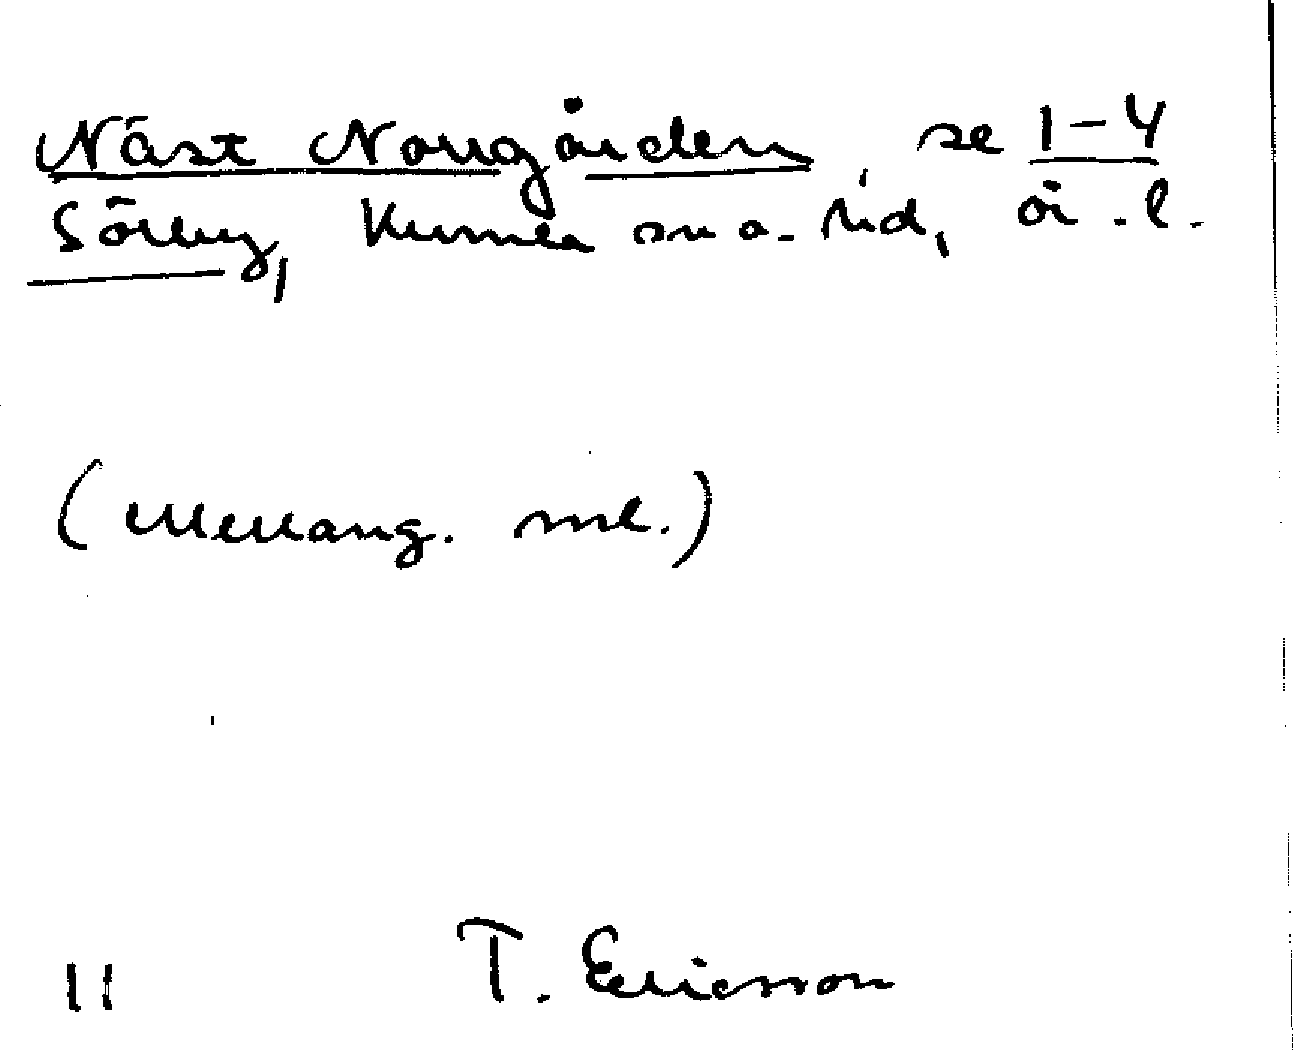 Näst Norrgården se 1-4
Sörby, Kumla sn o. hd, Ör. l.
(Mellang. ml.)
T. Ericsson
11